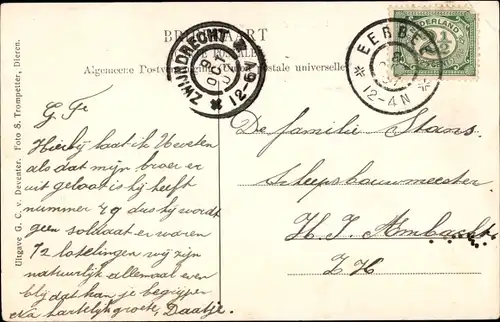 BRIEFKAART
Algemeene Postvereeniging Union postale universelle
ZWIJNDRECHT
OCT
12-6N
EERBEEK
12-4N
NEDERLAND
2½
CENT
Uitgave G. C. v. Deventer. Foto S. Trompetter, Dieren.
G. Fr
Hierbij laat ik U weten
als dat mijn broer er
uit geloot is hij heeft
nummer 49 dus hij wordt
geen soldaat er waren
72 lotelingen wij zijn
natuurlijk allemaal even
blij dat kan je begrijpen
Na hartelijk groete, Daatje.
De familie Stans
Scheepsbouwmeester
H. I. Ambacht
Z H